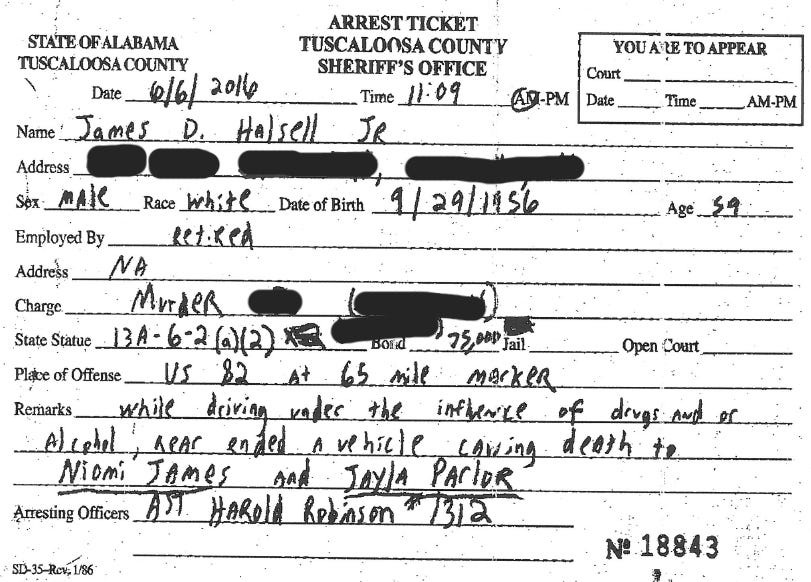 STATE OF ALABAMA
TUSCALOOSA COUNTY
ARREST TICKET
TUSCALOOSA COUNTY
SHERIFF'S OFFICE
YOU ARE TO APPEAR
Court
Date Time AM-PM
Date 6/6/2016 Time 11:09 AM-PM
Name James D. Halsell Jr
Address
Sex male Race white Date of Birth 9/29/1956 Age 59
Employed By retired
Address NA
Charge Murder
State Statue 13A-6-2(a)(2) Bond 75,000 Jail Open Court
Place of Offense US 82 At 65 mile marker
Remarks while driving under the influence of drugs and or
Alcohol, rear ended a vehicle causing death to
Niomi James and Jayla Parlor
Arresting Officers AST Harold Robinson #1312
№ 18843
SD-35-Rev. 1/86